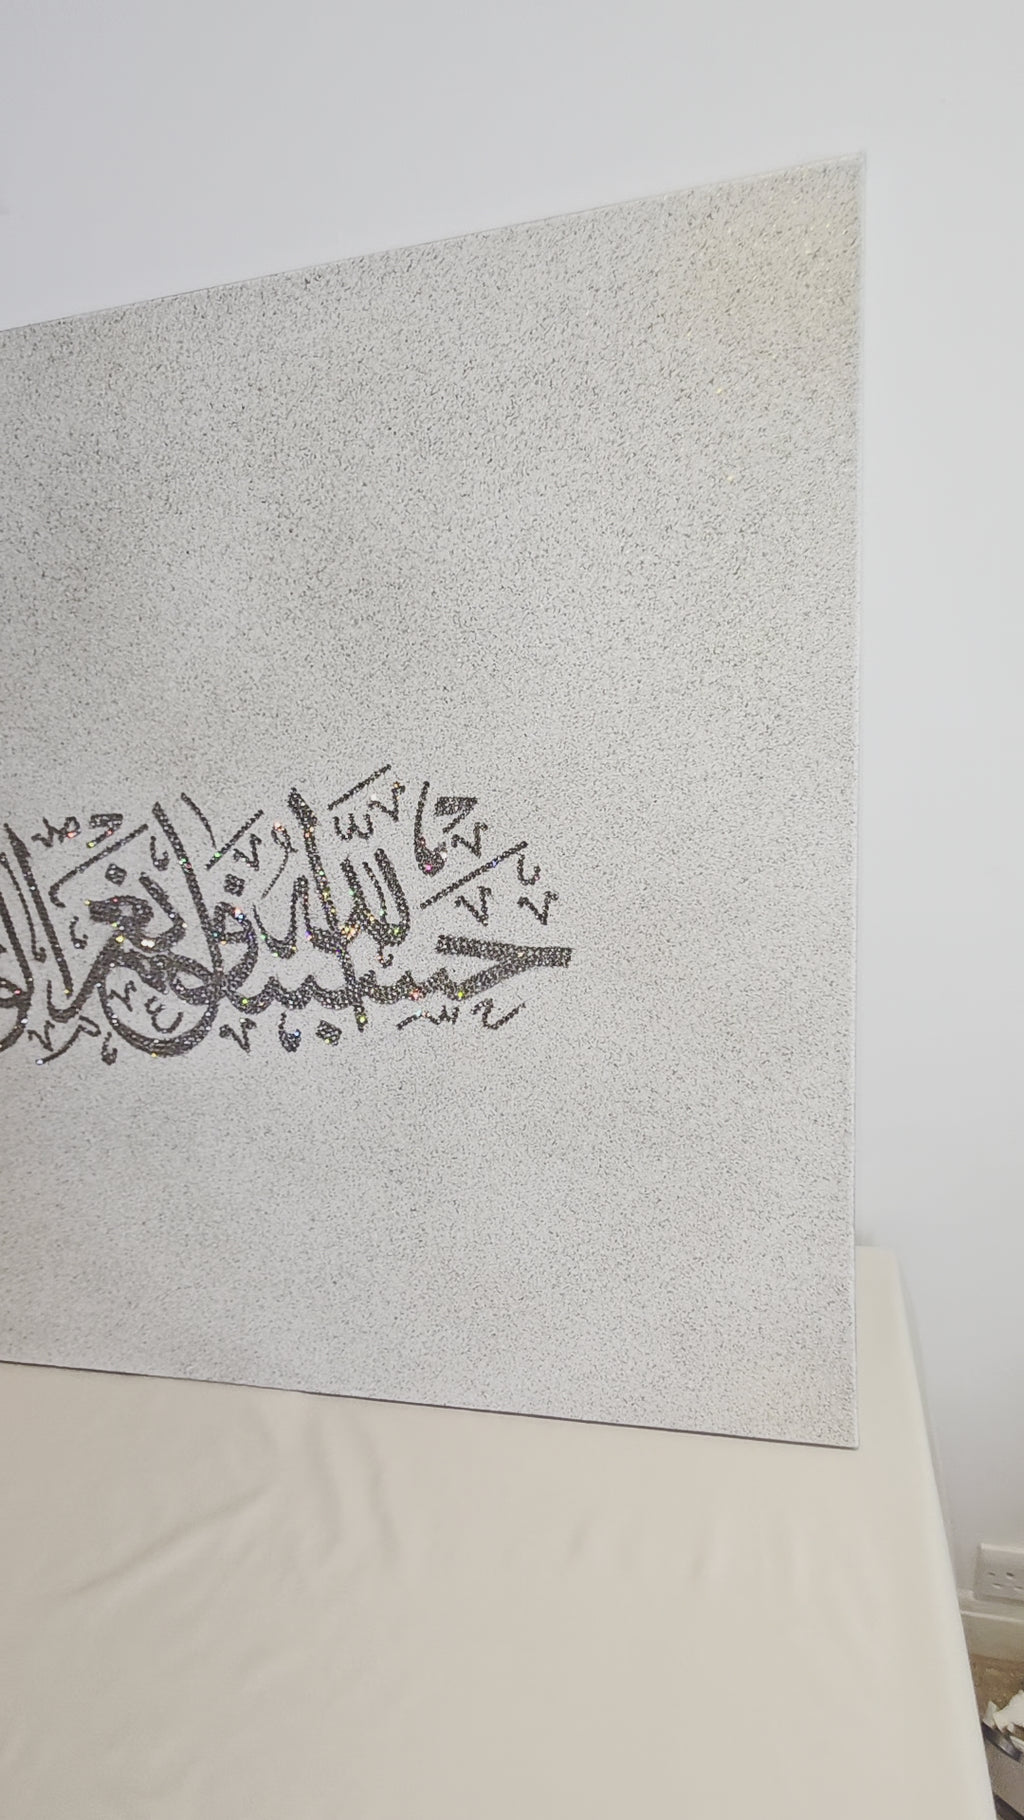 حسبنا الله ونعم